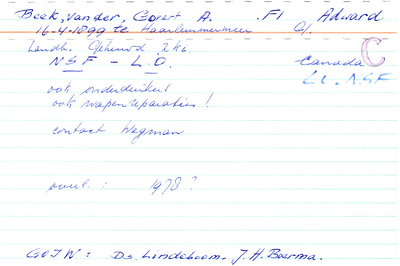 Beek, van der, Govert A. .F1 Adward
16-4-1899 te Haarlemmermeer G/.
Landb. Gehuwd, 2 k.
NSF - L.O. Canada C
LO. NSF
ook onderduiker!
ook wapenreparaties!
contact Wegman
overl.: 1978?
GOIW: Ds. Lindeboom. J.H. Boerma.